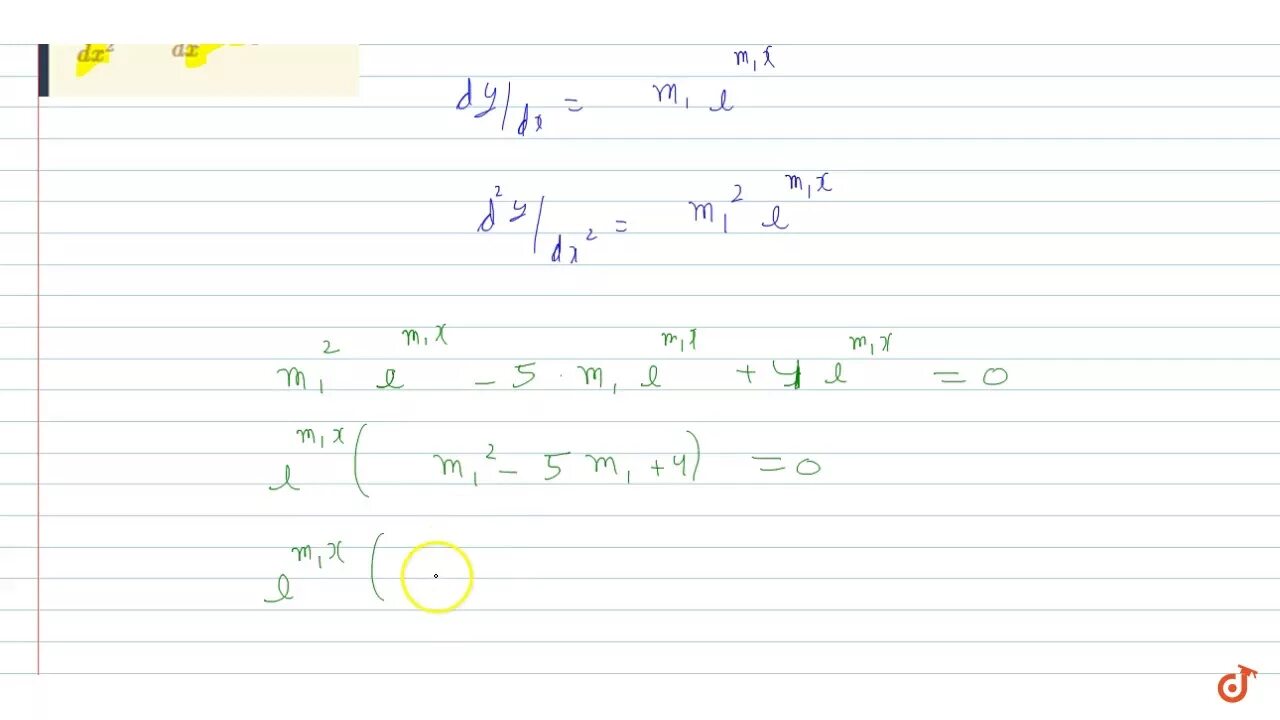 dx² dx
dy/dx = m₁ e^(m₁x)
d²y/dx² = m₁² e^(m₁x)
m₁² e^(m₁x) - 5 · m₁ e^(m₁x) + 4 e^(m₁x) = 0
e^(m₁x) ( m₁² - 5 m₁ + 4) = 0
e^(m₁x) (